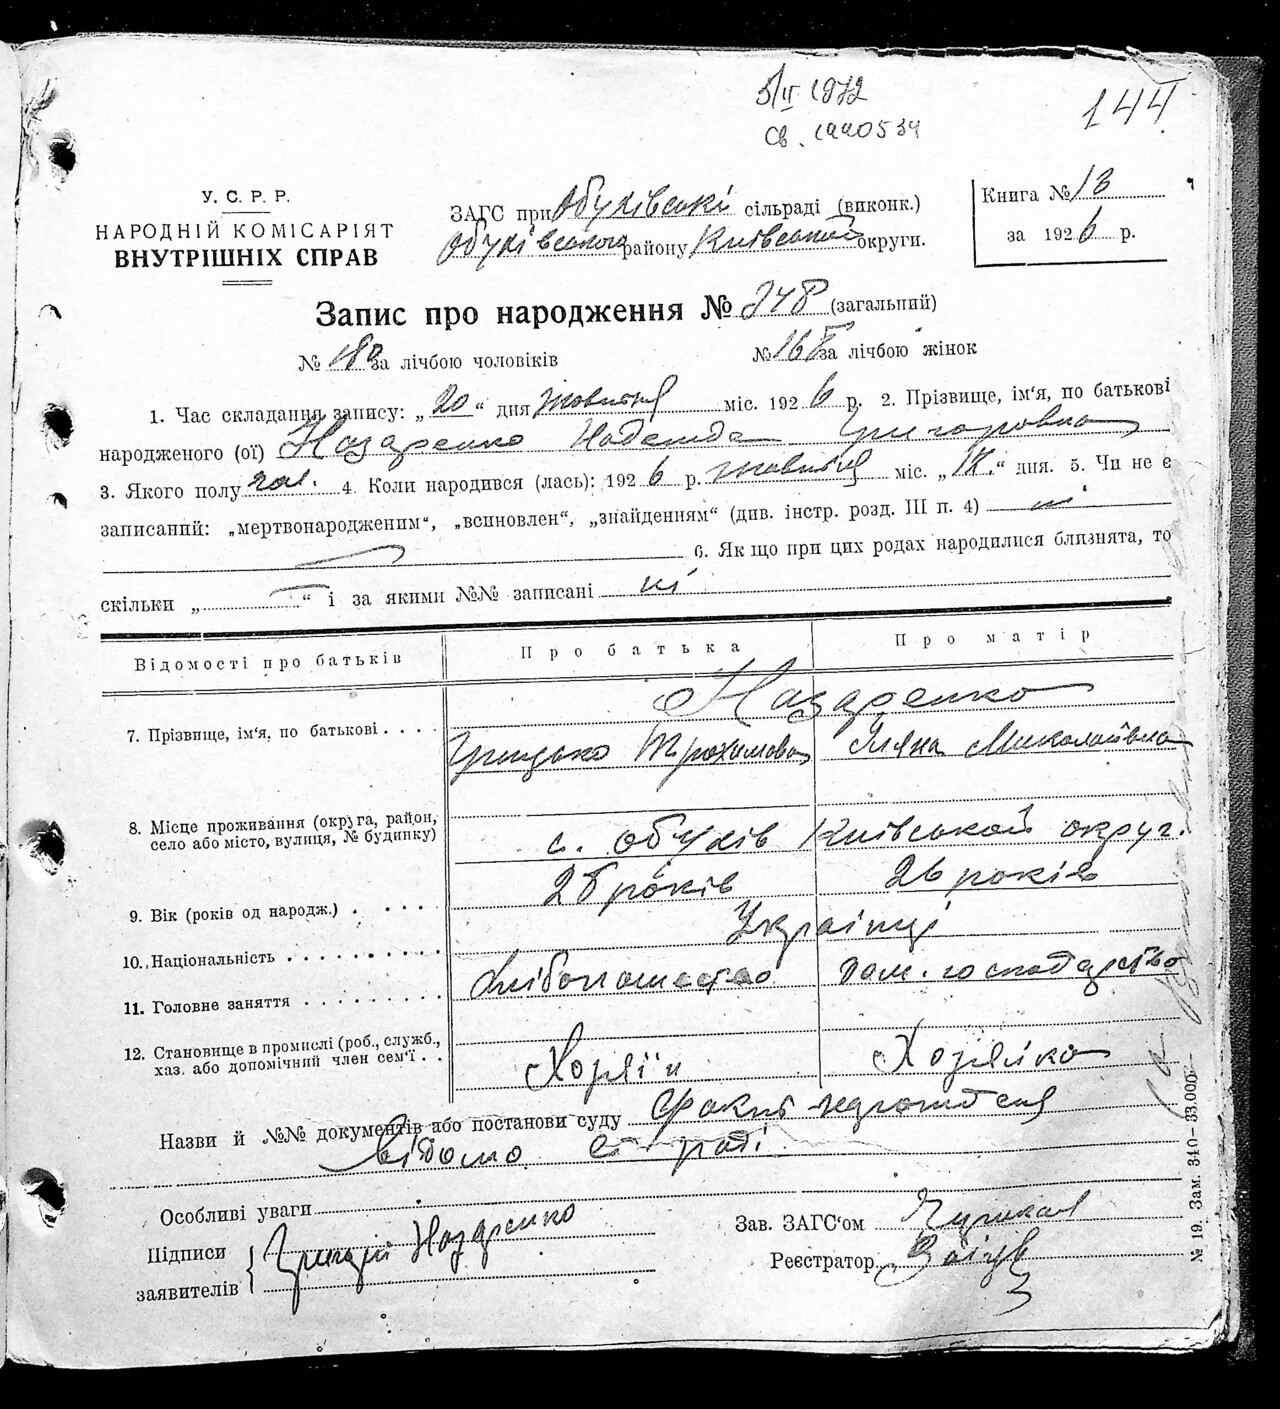 5/ІІ 1972
144
св. 1990534
У. С. Р. Р.
НАРОДНІЙ КОМІСАРІЯТ
ВНУТРІШНІХ СПРАВ
ЗАГС при Обухівські сільраді (виконк.)
Обухівського району Київськой округи.
Книга № 13
за 1926 р.
Запис про народження № 348 (загальний)
№ 180 за лічбою чоловіків № 168 за лічбою жінок
1. Час складання запису: „20“ дня жовтня міс. 1926 р. 2. Прізвище, ім‘я, по батькові
народженого (ої) Назаренко Надежда Григоровна
3. Якого полу 4. Коли народився (лась): 1926 р. жовтня міс. „ІХ.“ дня. 5. Чи не є
записаний: „мертвонародженим“, „всиновлен“, „знайденням“ (див. інстр. розд. III п. 4) ні
6. Як що при цих родах народилися близнята, то
скільки „ “ і за якими №№ записані ні
Відомості про батьків Про батька Про матір
Назаренко
7. Прізвище, ім‘я, по батькові . . . .
Грицько Трохимова Уляна Миколаївна
8. Місце проживання (округа, район,
село або місто, вулиця, № будинку)
с. Обухів Київськой округ.
9. Вік (років од народж.) . . . . . 28 років 26 років
10. Національність . . . . . . . . . . Українці
11. Головне заняття . . . . . . . . . Хлібопашество дом. господарство
12. Становище в промислі (роб., служб.,
хаз. або допомічний член сем‘ї . .
Хозяїн Хозяйка
Назви й №№ документів або постанови суду Факт народження
відомо с-раді
Особливі уваги
Підписи
заявителів
Грицій Назаренко
Зав. ЗАГС‘ом
Реєстратор
№ 19. Зам. 340—33.000